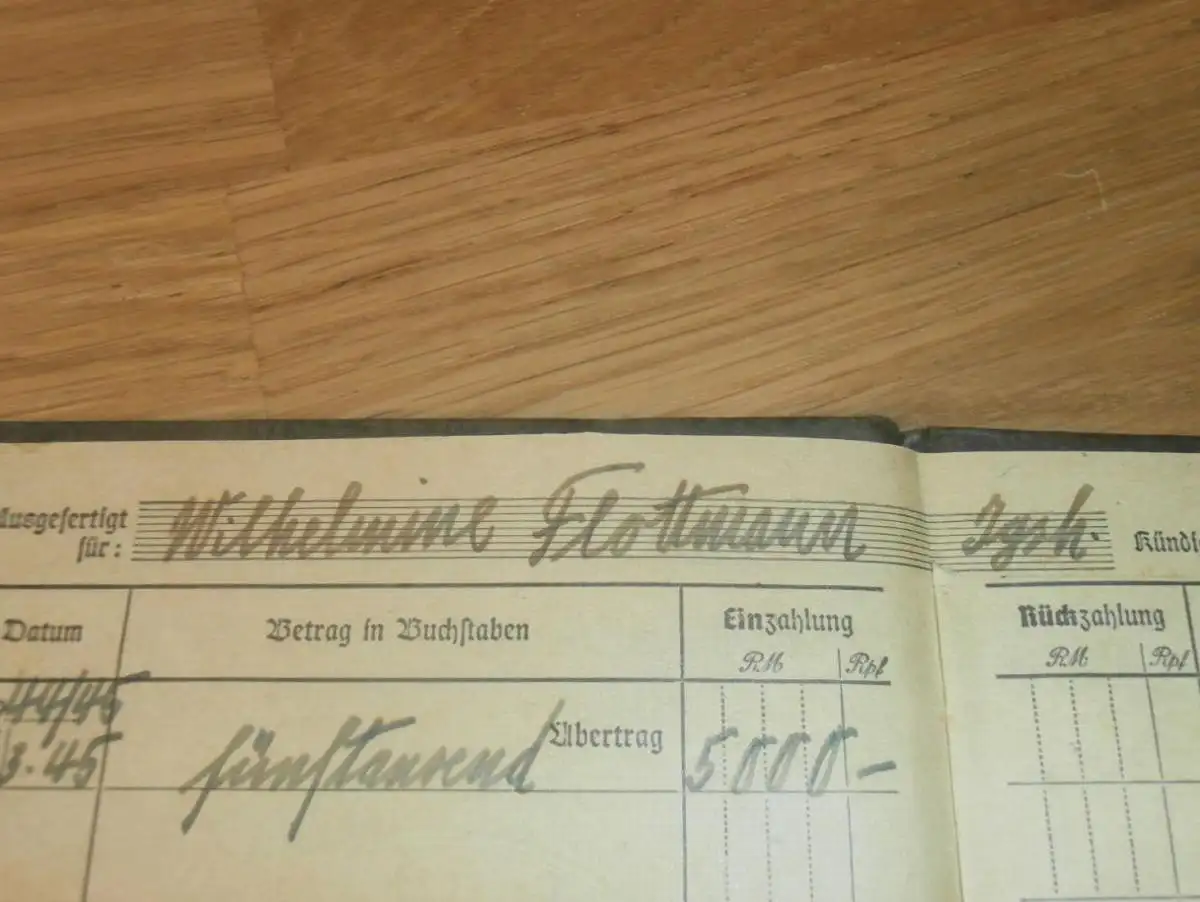 Ausgefertigt für: Wilhelmine Flottmann Jgsh. Kündi
Datum Betrag in Buchstaben Einzahlung Rückzahlung
RM Rpf RM Rpf
44/45
3.45 fünftausend Übertrag 5000 –